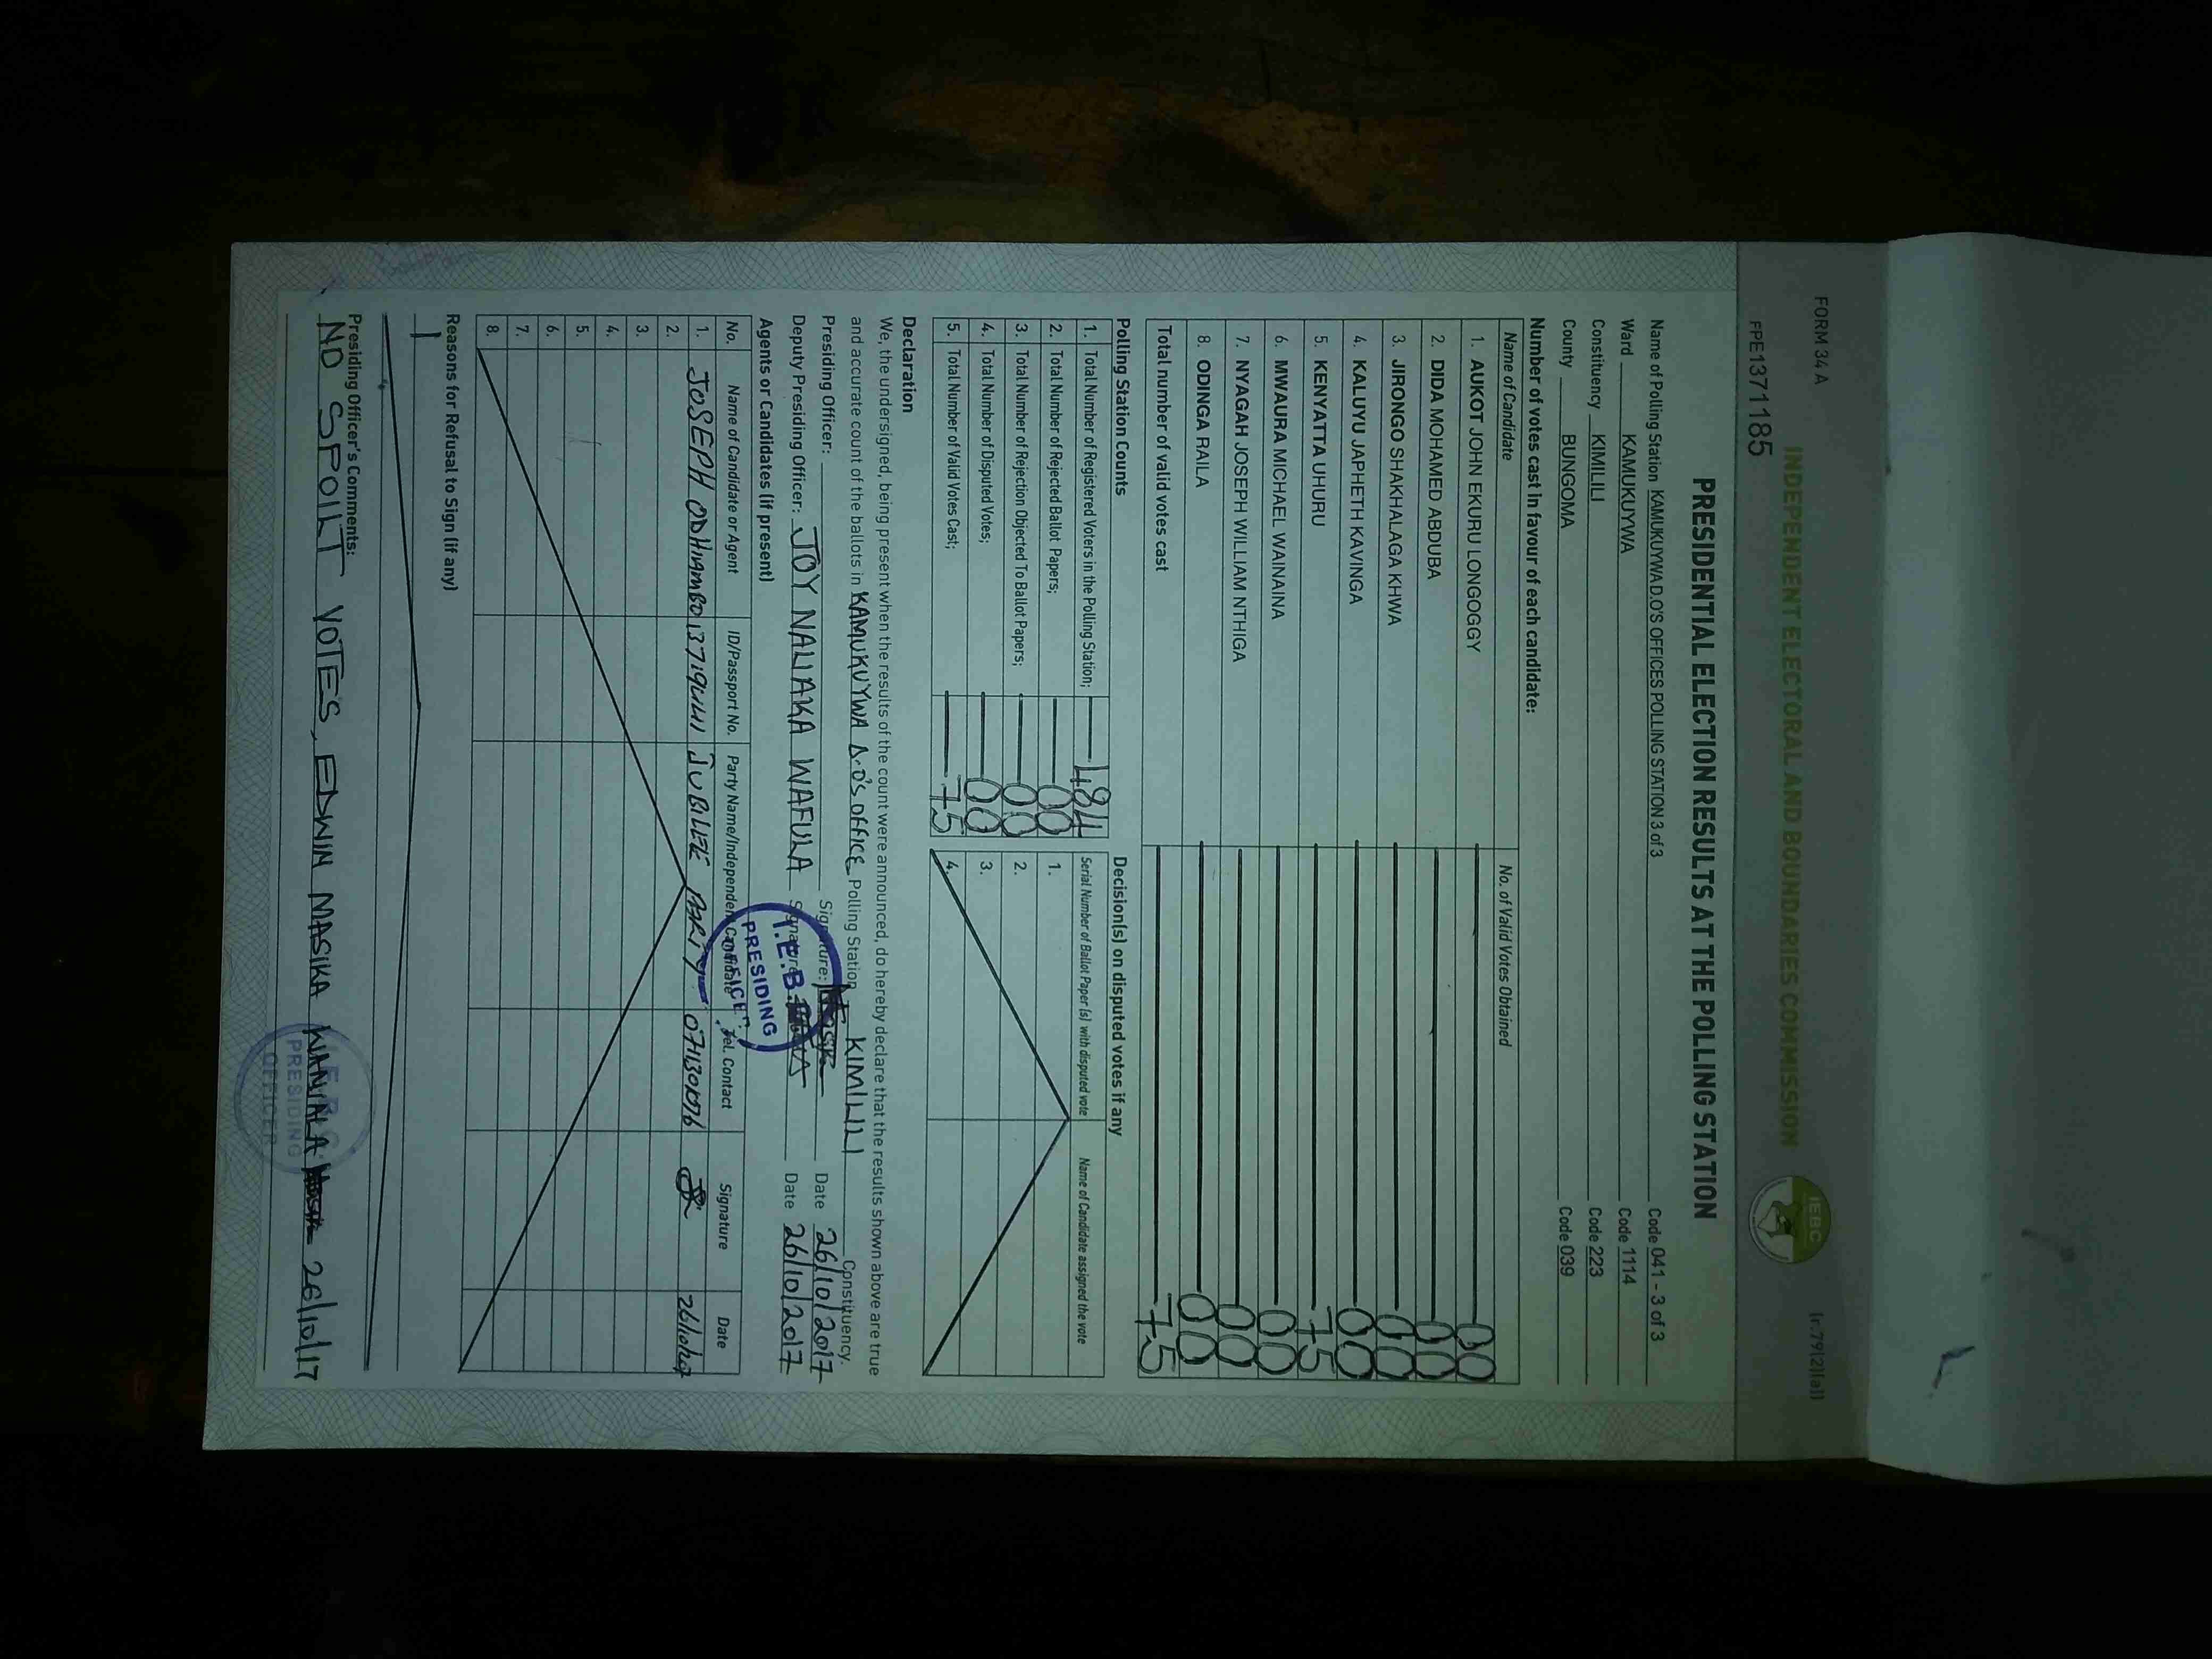 FORM 34 A
Ir.79(2)(a))
INDEPENDENT ELECTORAL AND BOUNDARIES COMMISSION
IEBC
FPE1371185
PRESIDENTIAL ELECTION RESULTS AT THE POLLING STATION
Name of Polling Station KAMUKUYWA D.O'S OFFICES POLLING STATION 3 of 3 Code 041 - 3 of 3
Ward KAMUKUYWA Code 1114
Constituency KIMILILI Code 223
County BUNGOMA Code 039
Number of votes cast in favour of each candidate:
Name of Candidate No. of Valid Votes Obtained
1. AUKOT JOHN EKURU LONGOGGY 00
2. DIDA MOHAMED ABDUBA 00
3. JIRONGO SHAKHALAGA KHWA 00
4. KALUYU JAPHETH KAVINGA 00
5. KENYATTA UHURU 75
6. MWAURA MICHAEL WAINAINA 00
7. NYAGAH JOSEPH WILLIAM NTHIGA 00
8. ODINGA RAILA 00
Total number of valid votes cast 75
Polling Station Counts
1. Total Number of Registered Voters in the Polling Station; 484
2. Total Number of Rejected Ballot Papers; 00
3. Total Number of Rejection Objected To Ballot Papers; 00
4. Total Number of Disputed Votes; 00
5. Total Number of Valid Votes Cast; 75
Decision(s) on disputed votes if any
Serial Number of Ballot Paper (s) with disputed vote Name of Candidate assigned the vote
1.
2.
3.
4.
Declaration
We, the undersigned, being present when the results of the count were announced, do hereby declare that the results shown above are true
and accurate count of the ballots in KAMUKUYWA D.O'S OFFICE Polling Station KIMILILI Constituency.
Presiding Officer: Signature: Date 26/10/2017
Deputy Presiding Officer: JOY NALIAKA WAFULA Signature: Date 26/10/2017
I.E.B.C
PRESIDING
OFFICER
Agents or Candidates (if present)
No. Name of Candidate or Agent ID/Passport No. Party Name/Independent Candidate Tel. Contact Signature Date
1. JOSEPH ODHIAMBO JUBILEE PARTY
2.
3.
4.
5.
6.
7.
8.
Reasons for Refusal to Sign (if any)
Presiding Officer's Comments:
NO SPOILT VOTES, EDWIN MASIKA WANJALA 26/10/17
PRESIDING
OFFICER